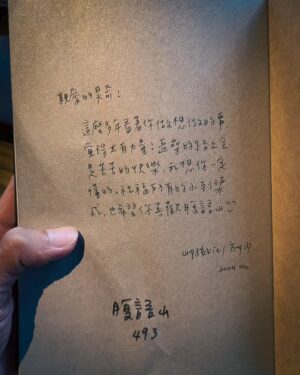 親愛的昊奇：
這麼多年看著你做想做的事
覺得太有力量；這翠的路上全
是苦苦的快樂，我想你一定
懂的，祝福所有的水到渠
成，也希望你喜歡腹語山
2024.06
腹語山
493